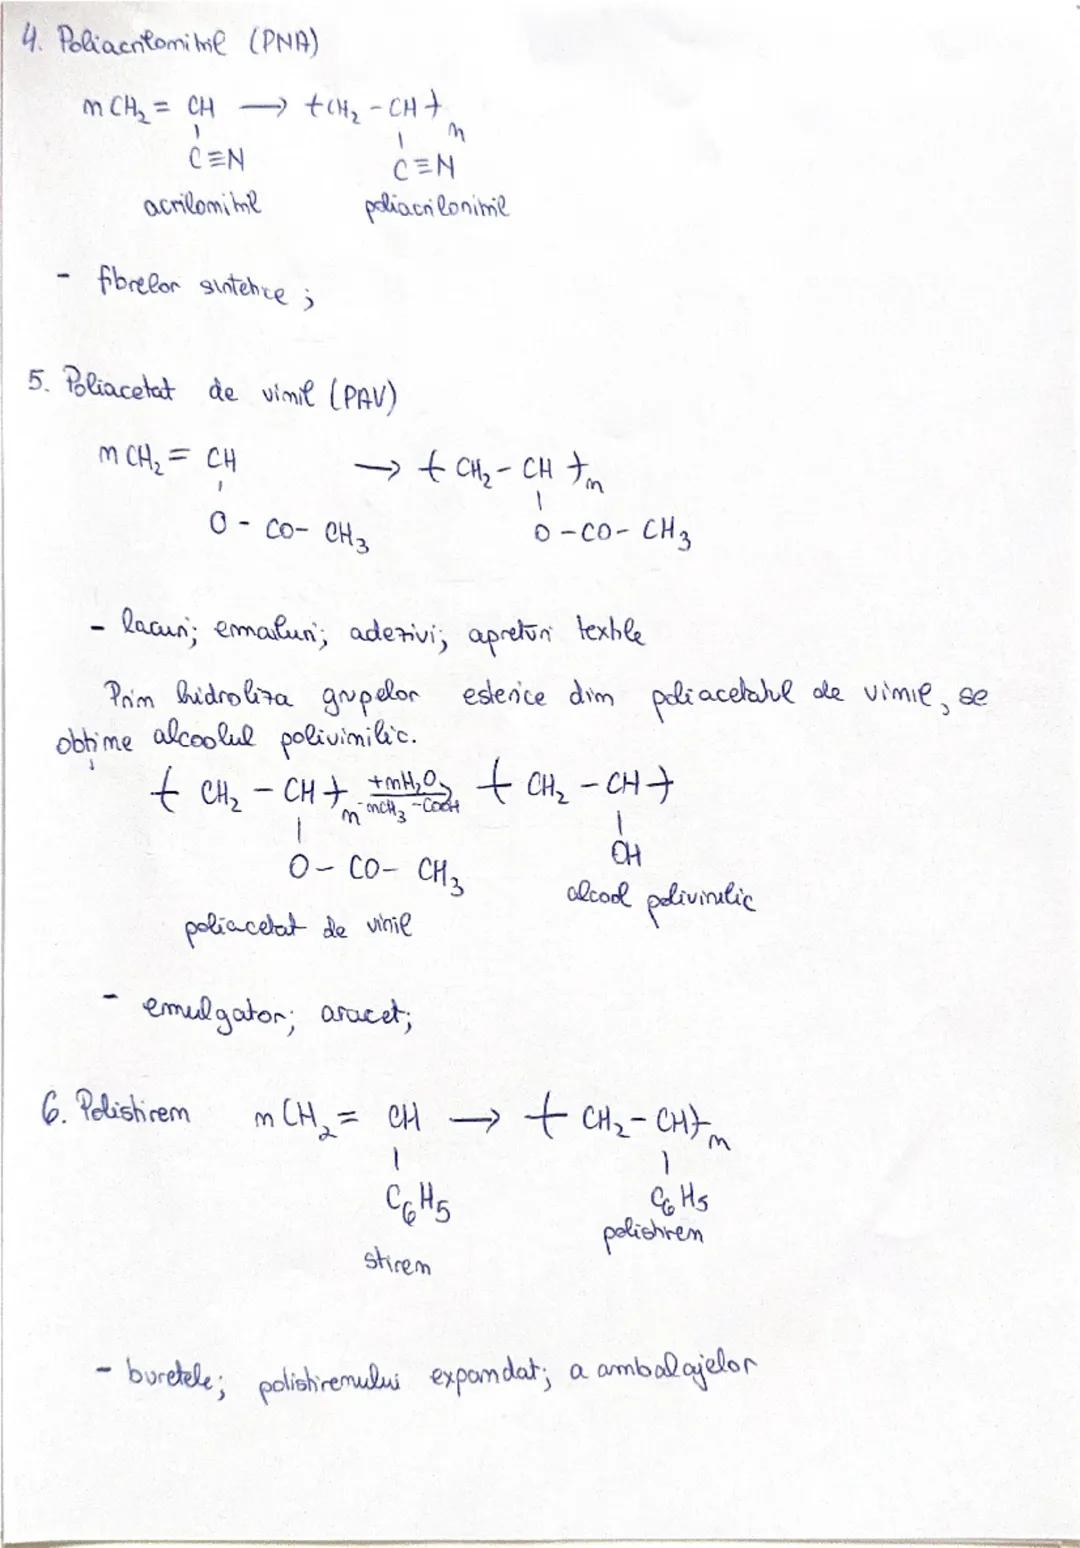 4. Poliacrilonitril (PNA)
nCH₂ = CH → +CH₂ - CH+n
C≡N C≡N
acrilonitril poliacrilonitril
- fibrelor sintetice;
5. Poliacetat de vinil (PAV)
nCH₂ = CH → +CH₂ - CH+n
O - CO - CH₃ O - CO - CH₃
- lacuri; emailuri; adezivi; apreturi textile
Prin hidroliza grupelor esterice din poliacetatul de vinil, se
obține alcoolul polivinilic.
+CH₂ - CH+n +nH₂O → +CH₂ - CH+
-nCH₃-COOH
O - CO - CH₃ OH
poliacetat de vinil alcool polivinilic
- emulgator; aracet;
6. Polistiren nCH₂ = CH → +CH₂ - CH+n
C₆H₅ C₆H₅
stiren polistiren
- buretele; polistirenului expandat; a ambalajelor